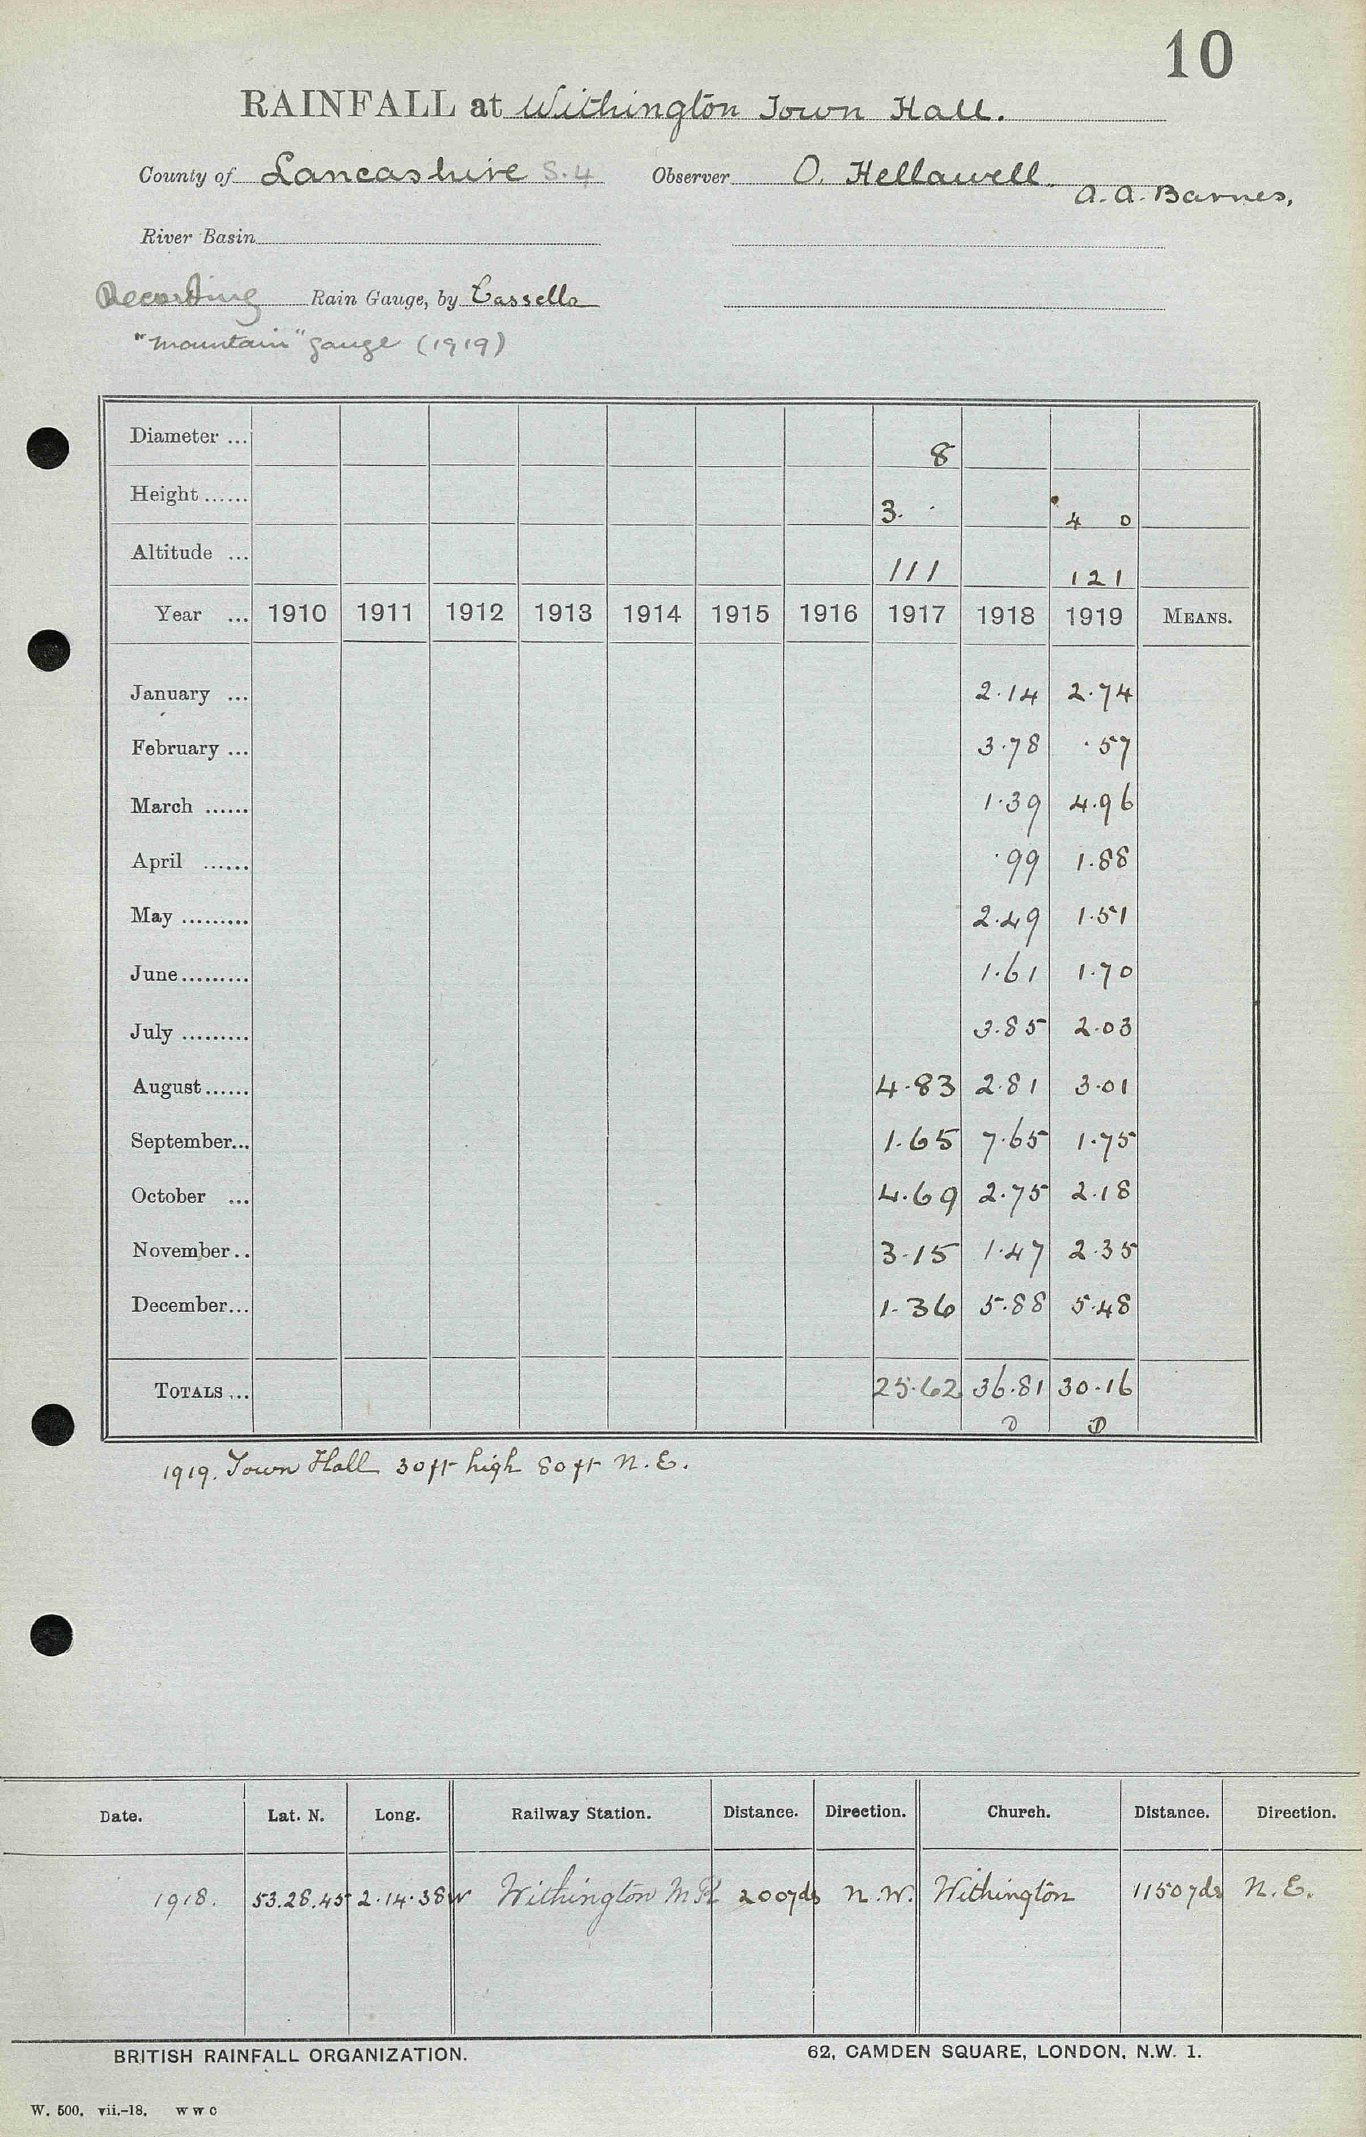 10
RAINFALL at Withington Town Hall.
County of Lancashire S.4 Observer O. Hellawell.
A. A. Barnes,
River Basin
Recording Rain Gauge, by Cassella
"Mountain" gauge (1919)
Diameter ... 8
Height ...... 3. 4 0
Altitude ... 111 121
Year ... 1910 1911 1912 1913 1914 1915 1916 1917 1918 1919 MEANS.
January ... 2.14 2.74
February ... 3.78 .57
March ...... 1.39 4.96
April ...... .99 1.88
May ......... 2.49 1.51
June......... 1.61 1.70
July ......... 3.85 2.03
August...... 4.83 2.81 3.01
September... 1.65 7.65 1.75
October ... 4.69 2.75 2.18
November.. 3.15 1.47 2.35
December... 1.36 5.88 5.48
TOTALS ... 25.62 36.81 30.16
1919. Town Hall 30ft high 80ft N.E.
Date. Lat. N. Long. Railway Station. Distance. Direction. Church. Distance. Direction.
1918. 53.28.45 2.14.38W Withington M R 200yds N.W. Withington 1150yds N.E.
BRITISH RAINFALL ORGANIZATION. 62, CAMDEN SQUARE, LONDON, N.W. 1.
W. 500. vii.-18. W W C